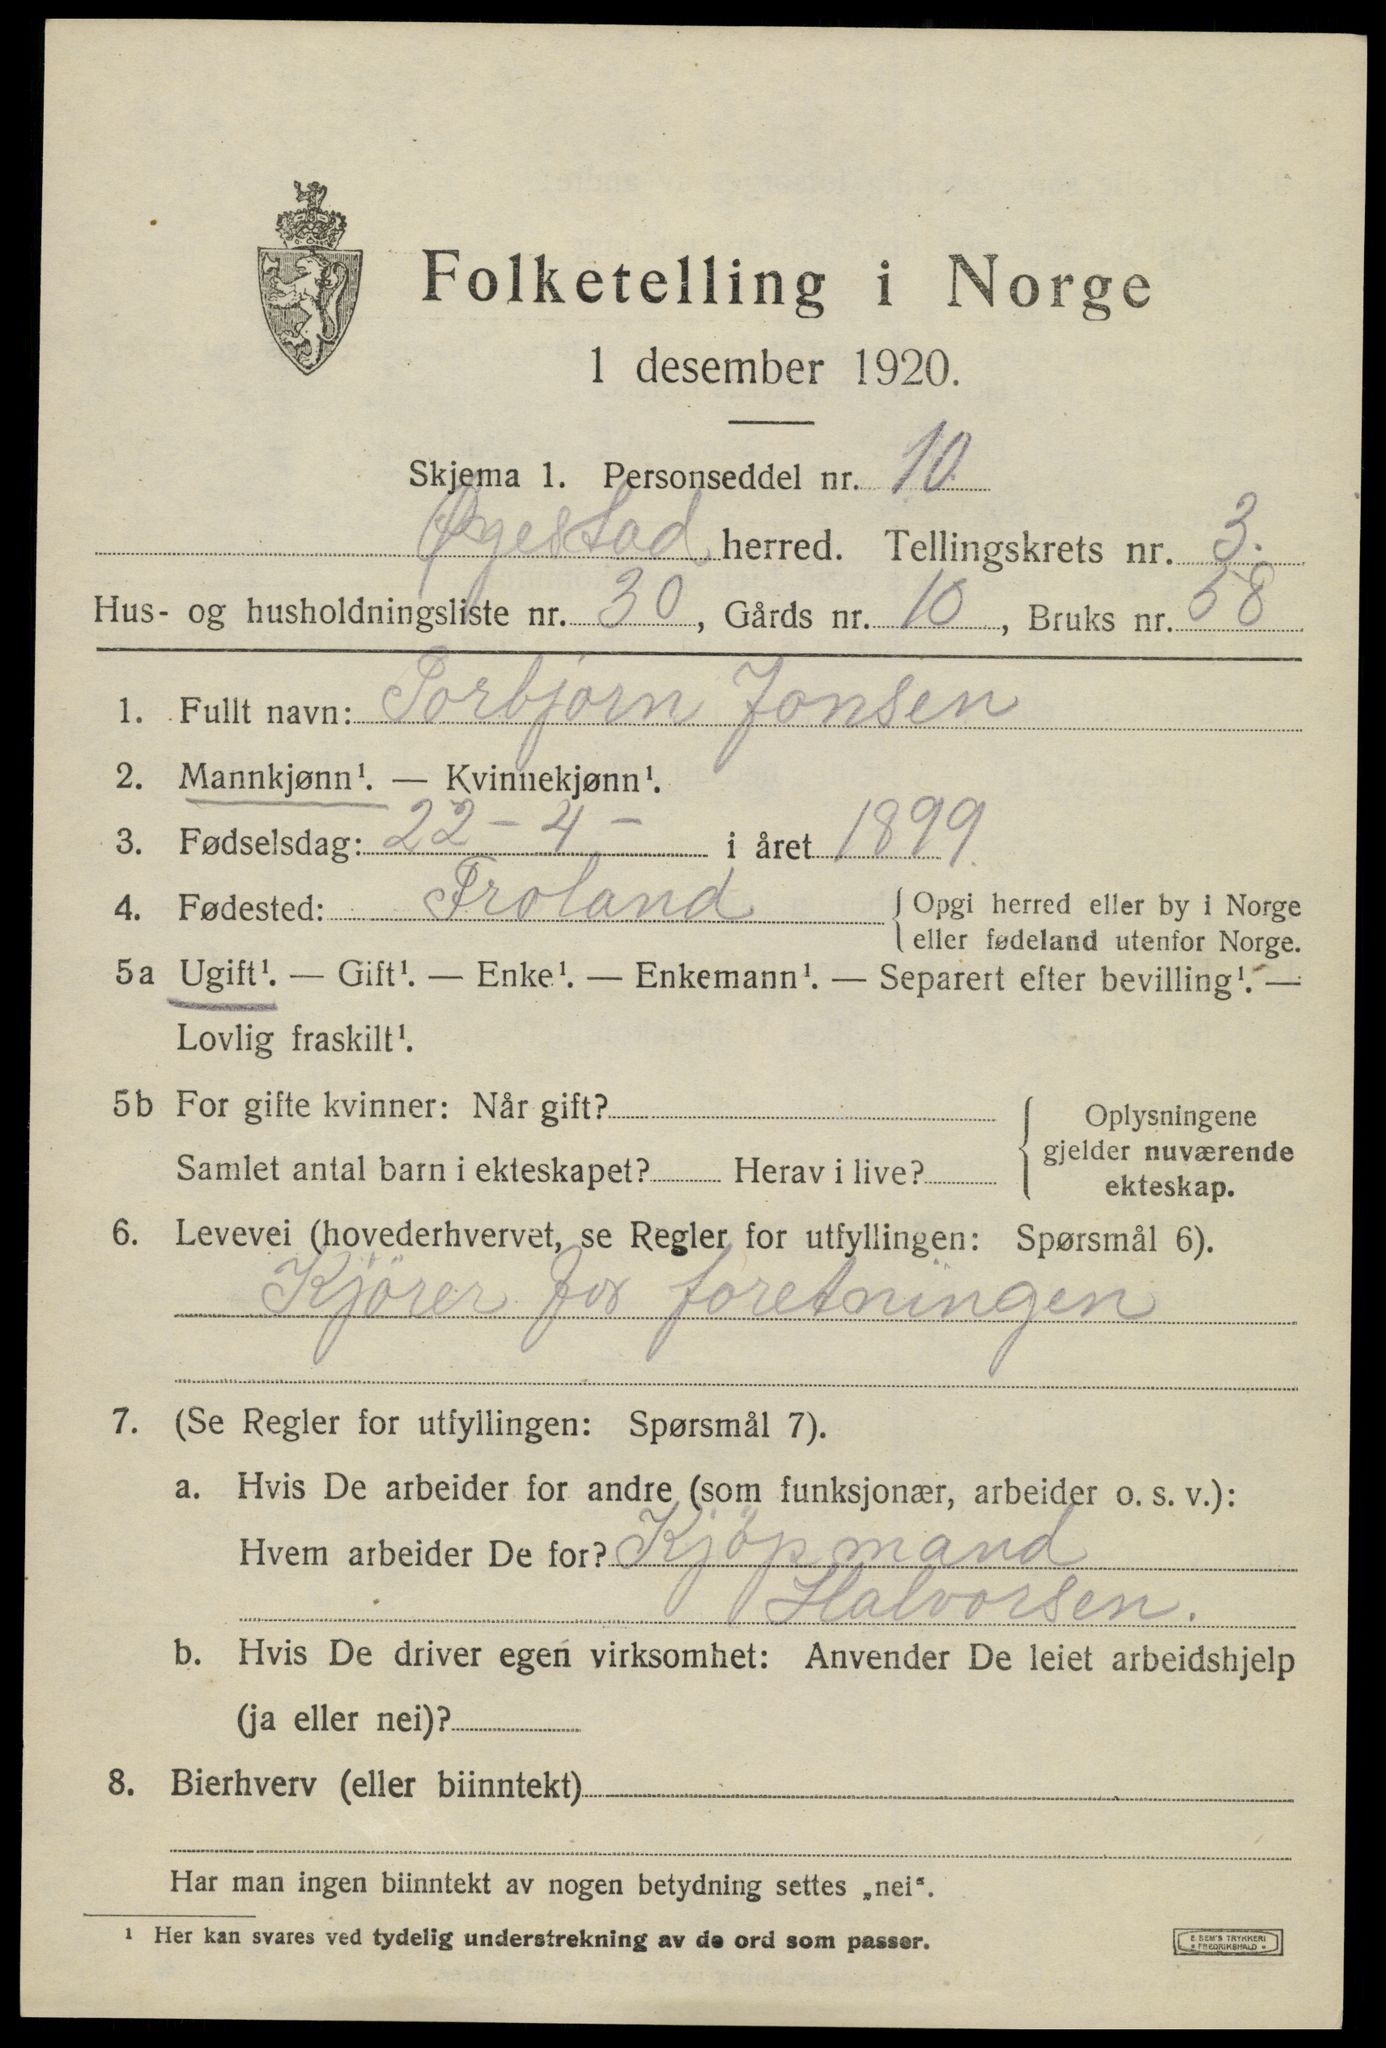 Folketelling i Norge
1 desember 1920.
Skjema 1. Personseddel nr. 10
Øyestad herred. Tellingskrets nr. 3.
Hus- og husholdningsliste nr. 30, Gårds nr. 10, Bruks nr. 58
1. Fullt navn: Torbjørn Jonsen
2. Mannkjønn¹. — Kvinnekjønn¹.
3. Fødselsdag: 22 - 4 - i året 1899.
4. Fødested: Froland { Opgi herred eller by i Norge
eller fødeland utenfor Norge.
5a Ugift¹. — Gift¹. — Enke¹. — Enkemann¹. — Separert efter bevilling¹. —
Lovlig fraskilt¹.
5b For gifte kvinner: Når gift? { Oplysningene
gjelder nuværende
Samlet antal barn i ekteskapet? Herav i live?
ekteskap.
6. Levevei (hovederhvervet, se Regler for utfyllingen: Spørsmål 6).
Kjörer for foretningen
7. (Se Regler for utfyllingen: Spørsmål 7).
a. Hvis De arbeider for andre (som funksjonær, arbeider o. s. v.):
Hvem arbeider De for? Kjöpmand
Halvorsen.
b. Hvis De driver egen virksomhet: Anvender De leiet arbeidshjelp
(ja eller nei)?
8. Bierhverv (eller biinntekt)
Har man ingen biinntekt av nogen betydning settes „nei“.
¹ Her kan svares ved tydelig understrekning av de ord som passer.
E. SEM'S TRYKKERI
• FREDRIKSHALD •